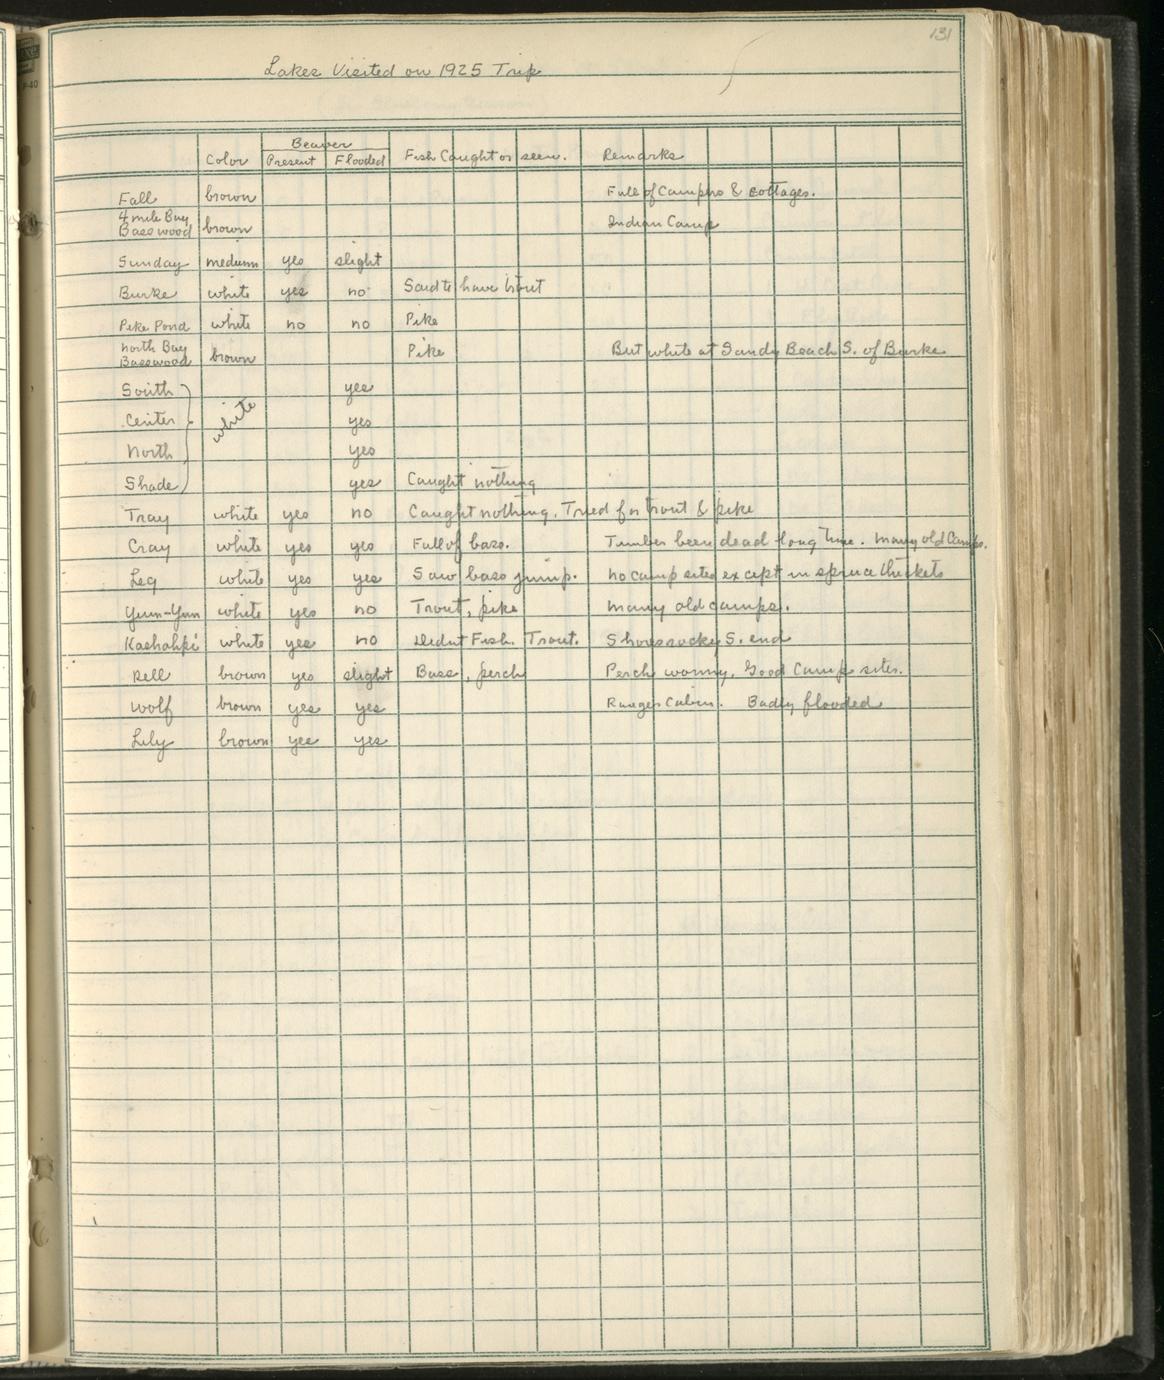 131
Lakes Visited on 1925 Trip
Beaver
Color Present Flooded Fish Caught or seen. Remarks
Fall brown Full of Campers & cottages.
4 mile Bay
Basswood brown Indian Camp
Sunday medium yes slight
Burke white yes no Said to have trout
Pike Pond white no no Pike
North Bay
Basswood brown Pike But white at Sandy Beach S. of Burke
South yes
Center white yes
North yes
Shade yes Caught nothing
Tray white yes no Caught nothing. Tried for trout & pike
Cray white yes yes Full of bass. Timber been dead long time. Many old Camps.
Leg white yes yes Saw bass jump. No camp sites except in spruce thickets
Yum-Yum white yes no Trout, pike Many old camps.
Kashahpi white yes no Didnt Fish. Trout. Shores rocky S. end
Rell brown yes slight Bass, perch Perch wormy. Good Camp sites.
Wolf brown yes yes Ranger Cabin. Badly flooded
Lily brown yes yes